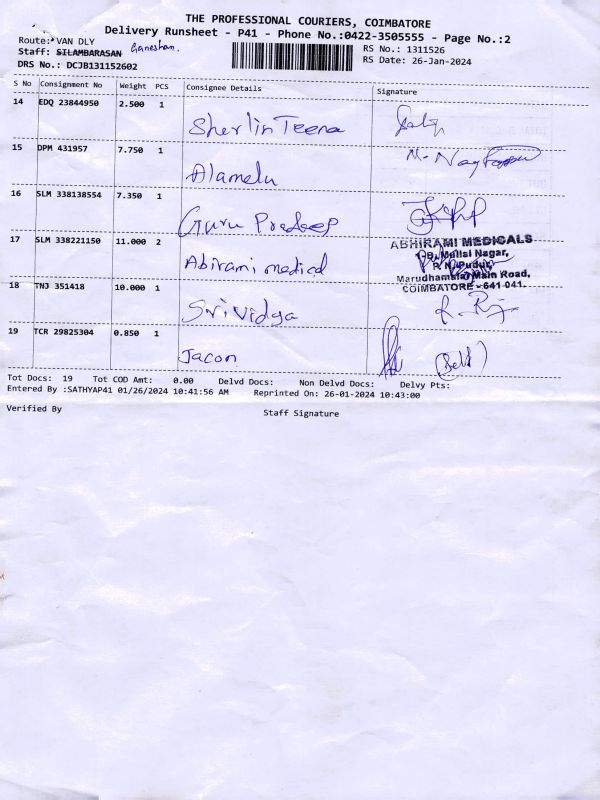 THE PROFESSIONAL COURIERS, COIMBATORE
Delivery Runsheet - P41 - Phone No.:0422-3505555 - Page No.:2
Route: VAN DLY
RS No.: 1311526
Staff: SILAMBARASAN Ganeshan.
RS Date: 26-Jan-2024
DRS No.: DCJB131152602
S No Consignment No Weight PCS Consignee Details Signature
14 EDQ 23844950 2.500 1 Sherlin Teena
15 DPM 431957 7.750 1 Alamelu
16 SLM 338138554 7.350 1 Guru Pradeep
17 SLM 338221150 11.000 2 Abirami medical
ABHIRAMI MEDICALS
Nagar,
P. N. Pudur,
Marudhamalai Main Road,
COIMBATORE - 641 041.
18 TNJ 351418 10.000 1 Srividya
19 TCR 29825304 0.850 1 Jacon (Self)
Tot Docs: 19 Tot COD Amt: 0.00 Delvd Docs: Non Delvd Docs: Delvy Pts:
Entered By :SATHYAP41 01/26/2024 10:41:56 AM Reprinted On: 26-01-2024 10:43:00
Verified By Staff Signature